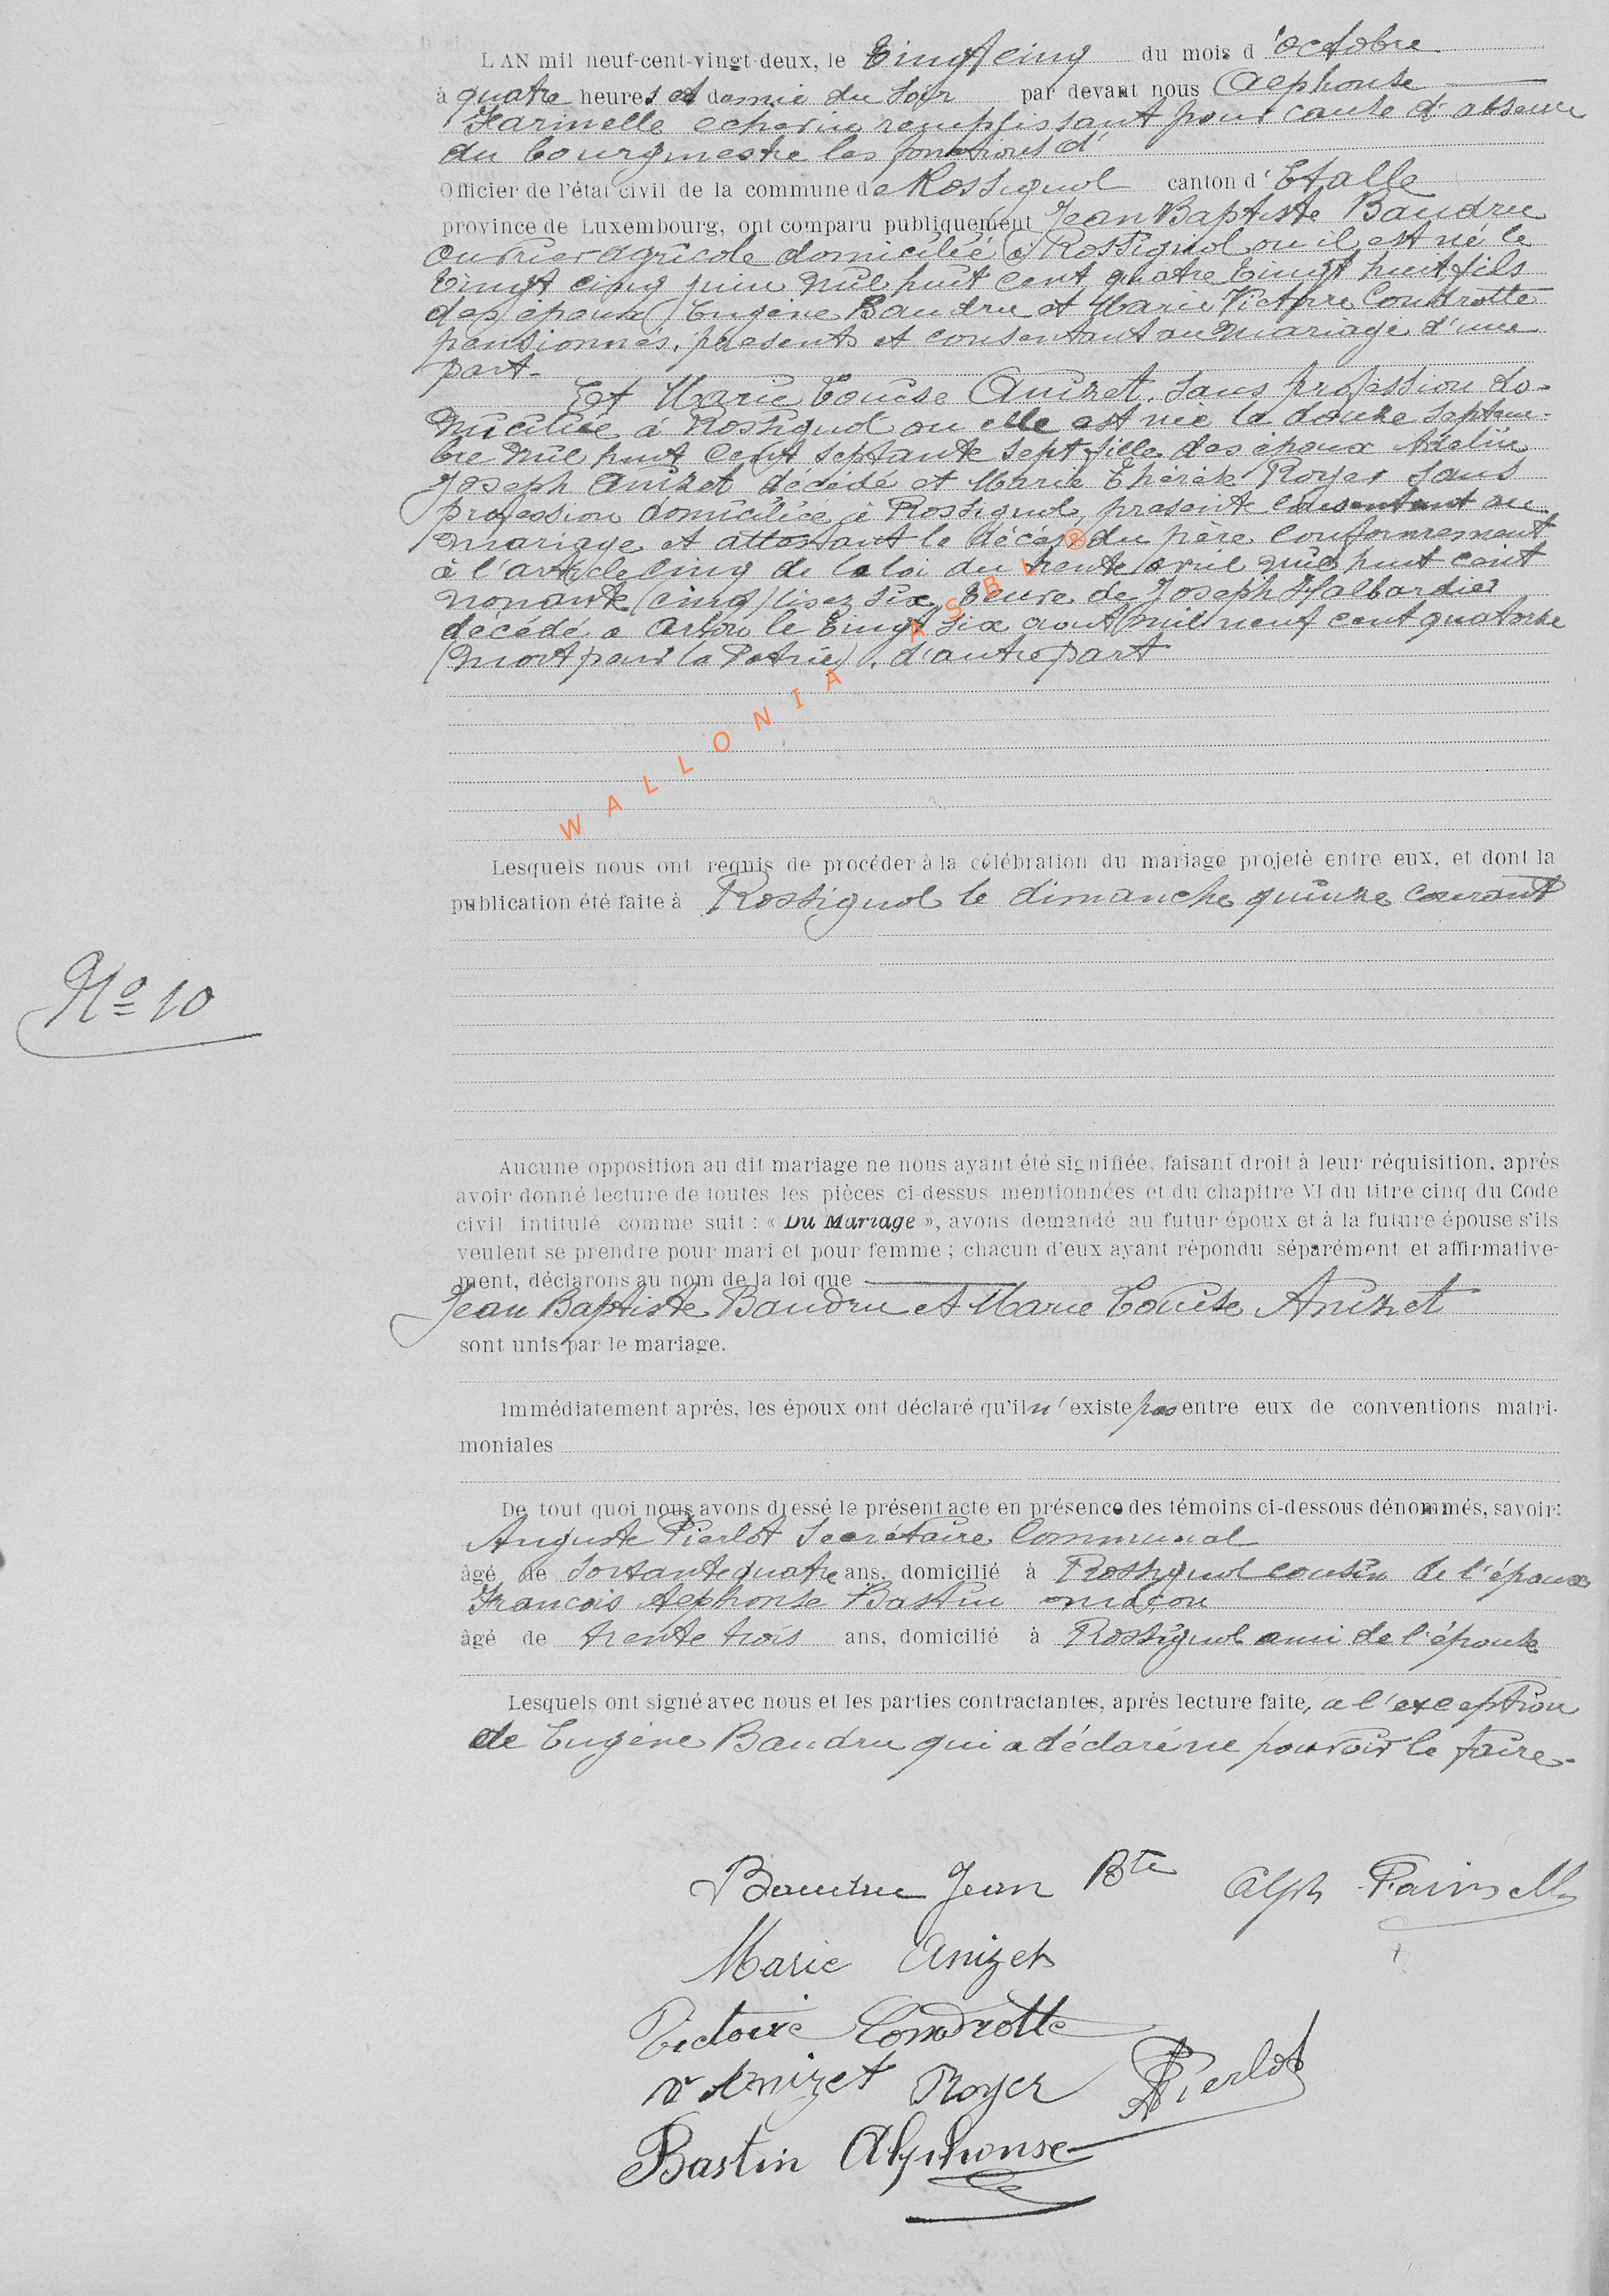 L'AN mil neuf-cent-vingt-deux, le Vingt cinq du mois d'octobre
à quatre heures et demie du soir par devant nous Alphonse
Farinelle echevin remplissant pour cause d'absence
du bourgmestre les fonctions d'
Officier de l'état civil de la commune de Rossignol canton d'Etalle
province de Luxembourg, ont comparu publiquement Jean Baptiste Baudru
ouvrier agricole domicilié à Rossignol ou il est né le
Vingt cinq juin mil huit cent quatre Vingt huit fils
des époux Eugène Baudru et Marie Victoire Condrotte
pensionnés, présents et consentant au mariage d'une
part.
Et Marie Louise Anizet, sans profession do-
miciliée à Rossignol ou elle est née le douze septem-
bre mil huit cent septante sept fille des époux Adelin
Joseph Anizet décédé et Marie Thérèse Royer sans
profession domiciliée à Rossignol, présente consentant au
mariage et attestant le décès du père conformement
à l'article cinq de la loi du trente avril mil huit cent
nonante (cinq) lisez six, Veuve de Joseph Halbardier
décédé a Arlon le Vingt six aout mil neuf cent quatorze
(mort pour la Patrie). d'autre part
WALLONIA ASBL ®
Lesquels nous ont requis de procéder à la célébration du mariage projeté entre eux, et dont la
publication été faite à Rossignol le dimanche quinze courant
No 10
Aucune opposition au dit mariage ne nous ayant été signifiée, faisant droit à leur réquisition, après
avoir donné lecture de toutes les pièces ci-dessus mentionnées et du chapitre VI du titre cinq du Code
civil intitulé comme suit : « Du Mariage », avons demandé au futur époux et à la future épouse s'ils
veulent se prendre pour mari et pour femme ; chacun d'eux ayant répondu séparément et affirmative-
ment, déclarons au nom de la loi que
Jean Baptiste Baudru et Marie Louise Anizet
sont unis par le mariage.
Immédiatement après, les époux ont déclaré qu'il n'existe pas entre eux de conventions matri-
moniales
De tout quoi nous avons dressé le présent acte en présence des témoins ci-dessous dénommés, savoir:
Auguste Pierlot Secrétaire Communal
âgé de soixante quatre ans, domicilié à Rossignol cousin de l'époux
François Alphonse Bastin maçon
âgé de trente trois ans, domicilié à Rossignol ami de l'épouse
Lesquels ont signé avec nous et les parties contractantes, après lecture faite, a l'exception
de Eugène Baudru qui a déclaré ne pouvoir le faire.
Baudru Jean Bte Alph Farinelle
Marie Anizet
Victoire Condrotte
Ve Anizet Royer APierlot
Bastin Alphonse